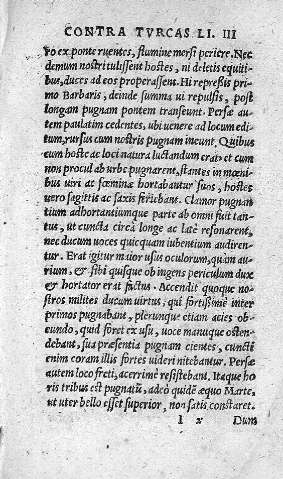 CONTRA TVRCAS LI. III
ro ex ponte ruentes, flumine mersi periere. Nec
demum nostri tulissent hostes, ni deletis equiti
bus, duces ad eos properassent. Hi repreßis pri
mo Barbaris, deinde summa ui repulsis, post
longam pugnam pontem transeunt. Persæ au
tem paulatim cedentes, ubi uenere ad locum edi
tum, rursus cum nostris pugnam ineunt. Quibus
cum hoste ac loci natura luctandum erat: et cum
non procul ab urbe pugnarent, stantes in mœni
bus uiri ac fœminæ hortabantur suos, hostes
uero sagittis ac saxis feriebant. Clamor pugnan
tium adhortantiumque parte ab omni fuit tan
tus, ut cuncta circà longe ac late resonarent,
nec ducum uoces quicquam iubentium audiren
tur. Erat igitur maior usus oculorum, quàm au
rium, & sibi quisque ob ingens periculum dux
& hortator erat factus. Accendit quoque no
stros milites ducum uirtus, qui fortißimè inter
primos pugnabant, plerunque etiam acies ob
eundo, quid foret ex usu, uoce manuque osten
debant, sua præsentia pugnam cientes, cuncti
enim coram illis fortes uideri nitebantur. Persæ
autem loco freti, acerrimè resistebant. Itaque ho
ris tribus est pugnatũ, adeò quidẽ æquo Marte,
ut uter bello esset superior, non satis constaret.
l 2 Dum